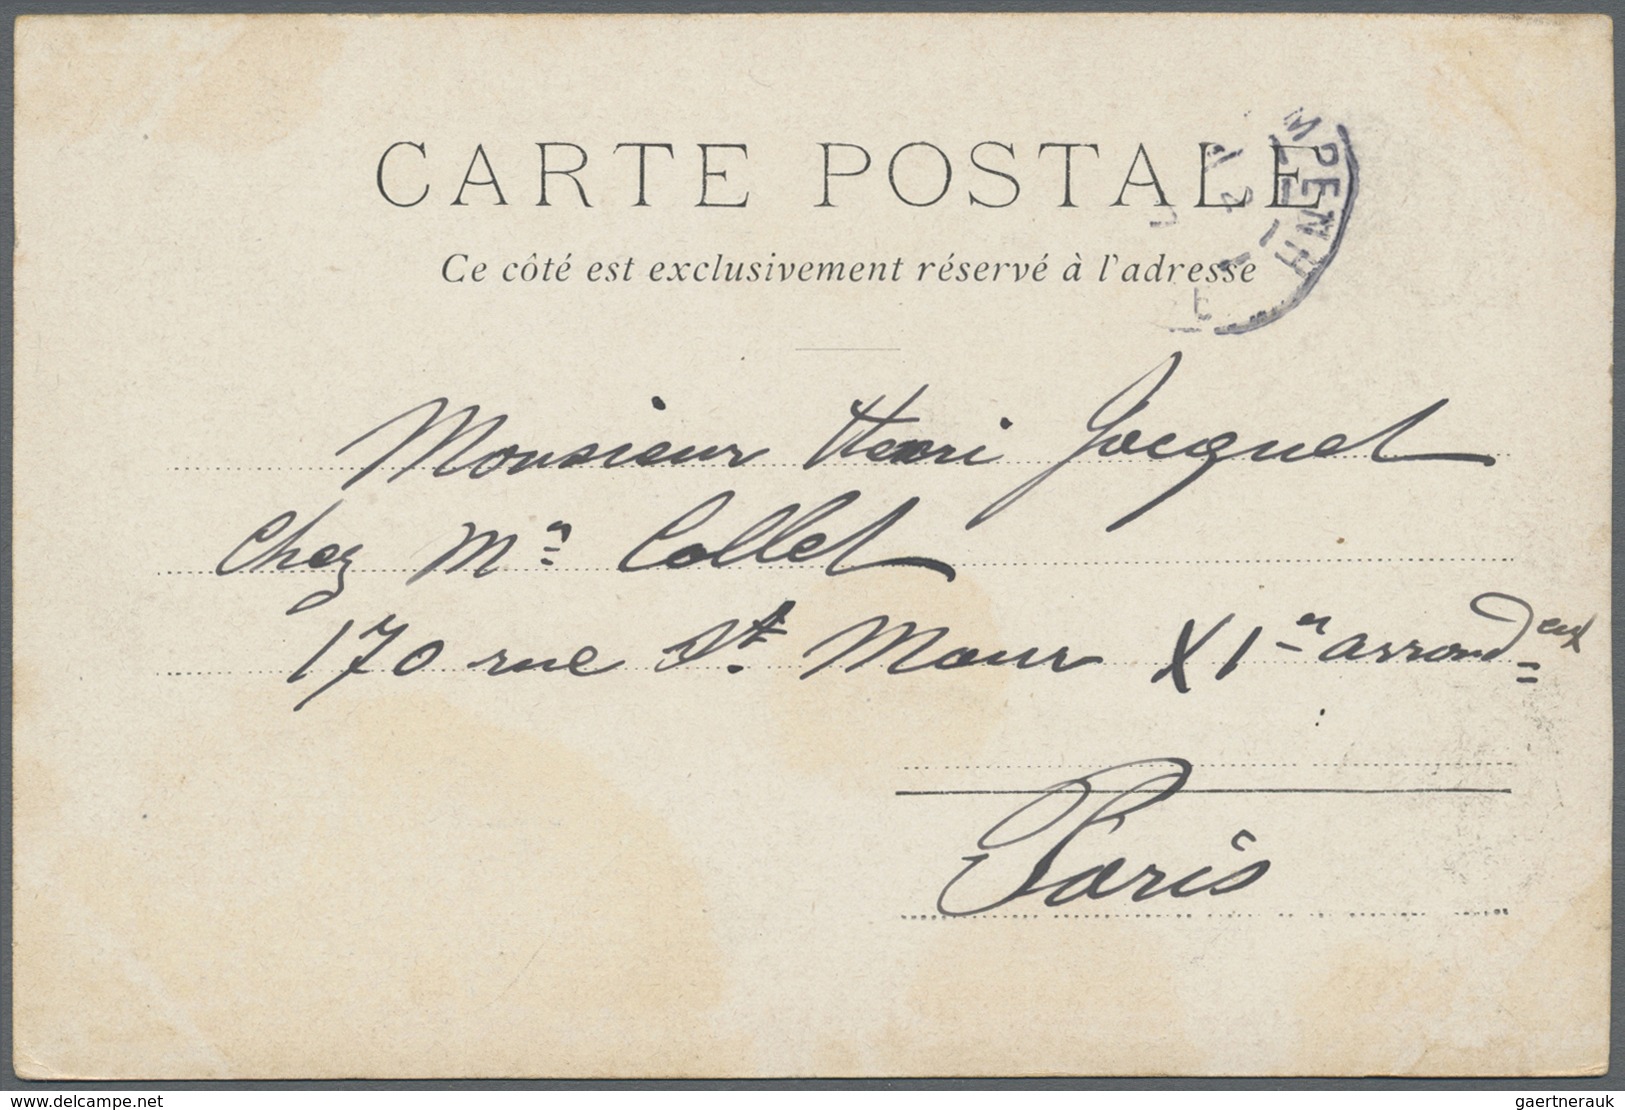 CARTE POSTALE
Ce côté est exclusivement réservé à l'adresse
MPENH
Monsieur Henri Jacquet
Chez Mr Collet
170 rue St. Maur XI er arrondent
Paris
www.delcampe.com
gaertnerauk